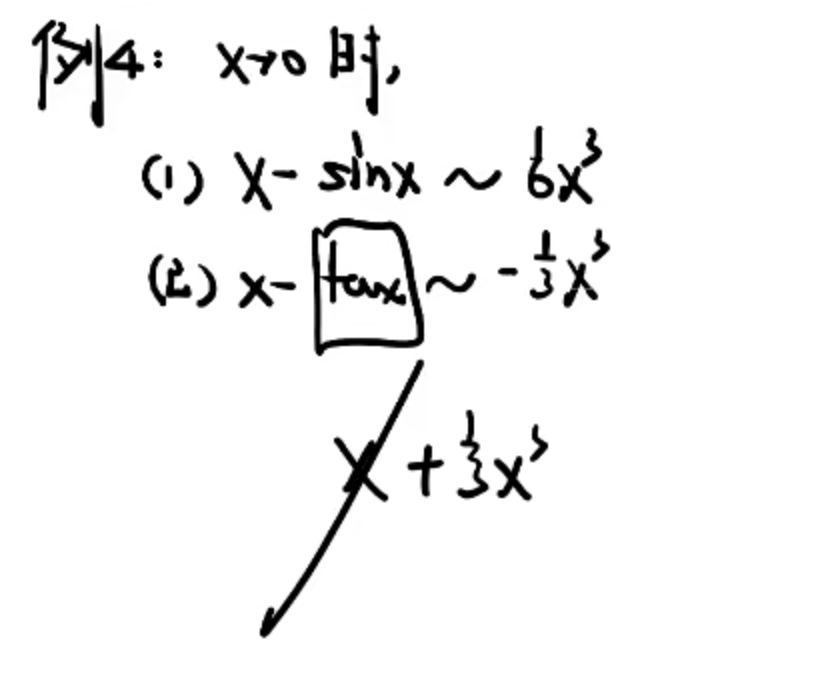 例4: x→0 时,
(1) x - sinx ~ 1/6 x³
(2) x - tanx ~ -1/3 x³
x + 1/3 x³